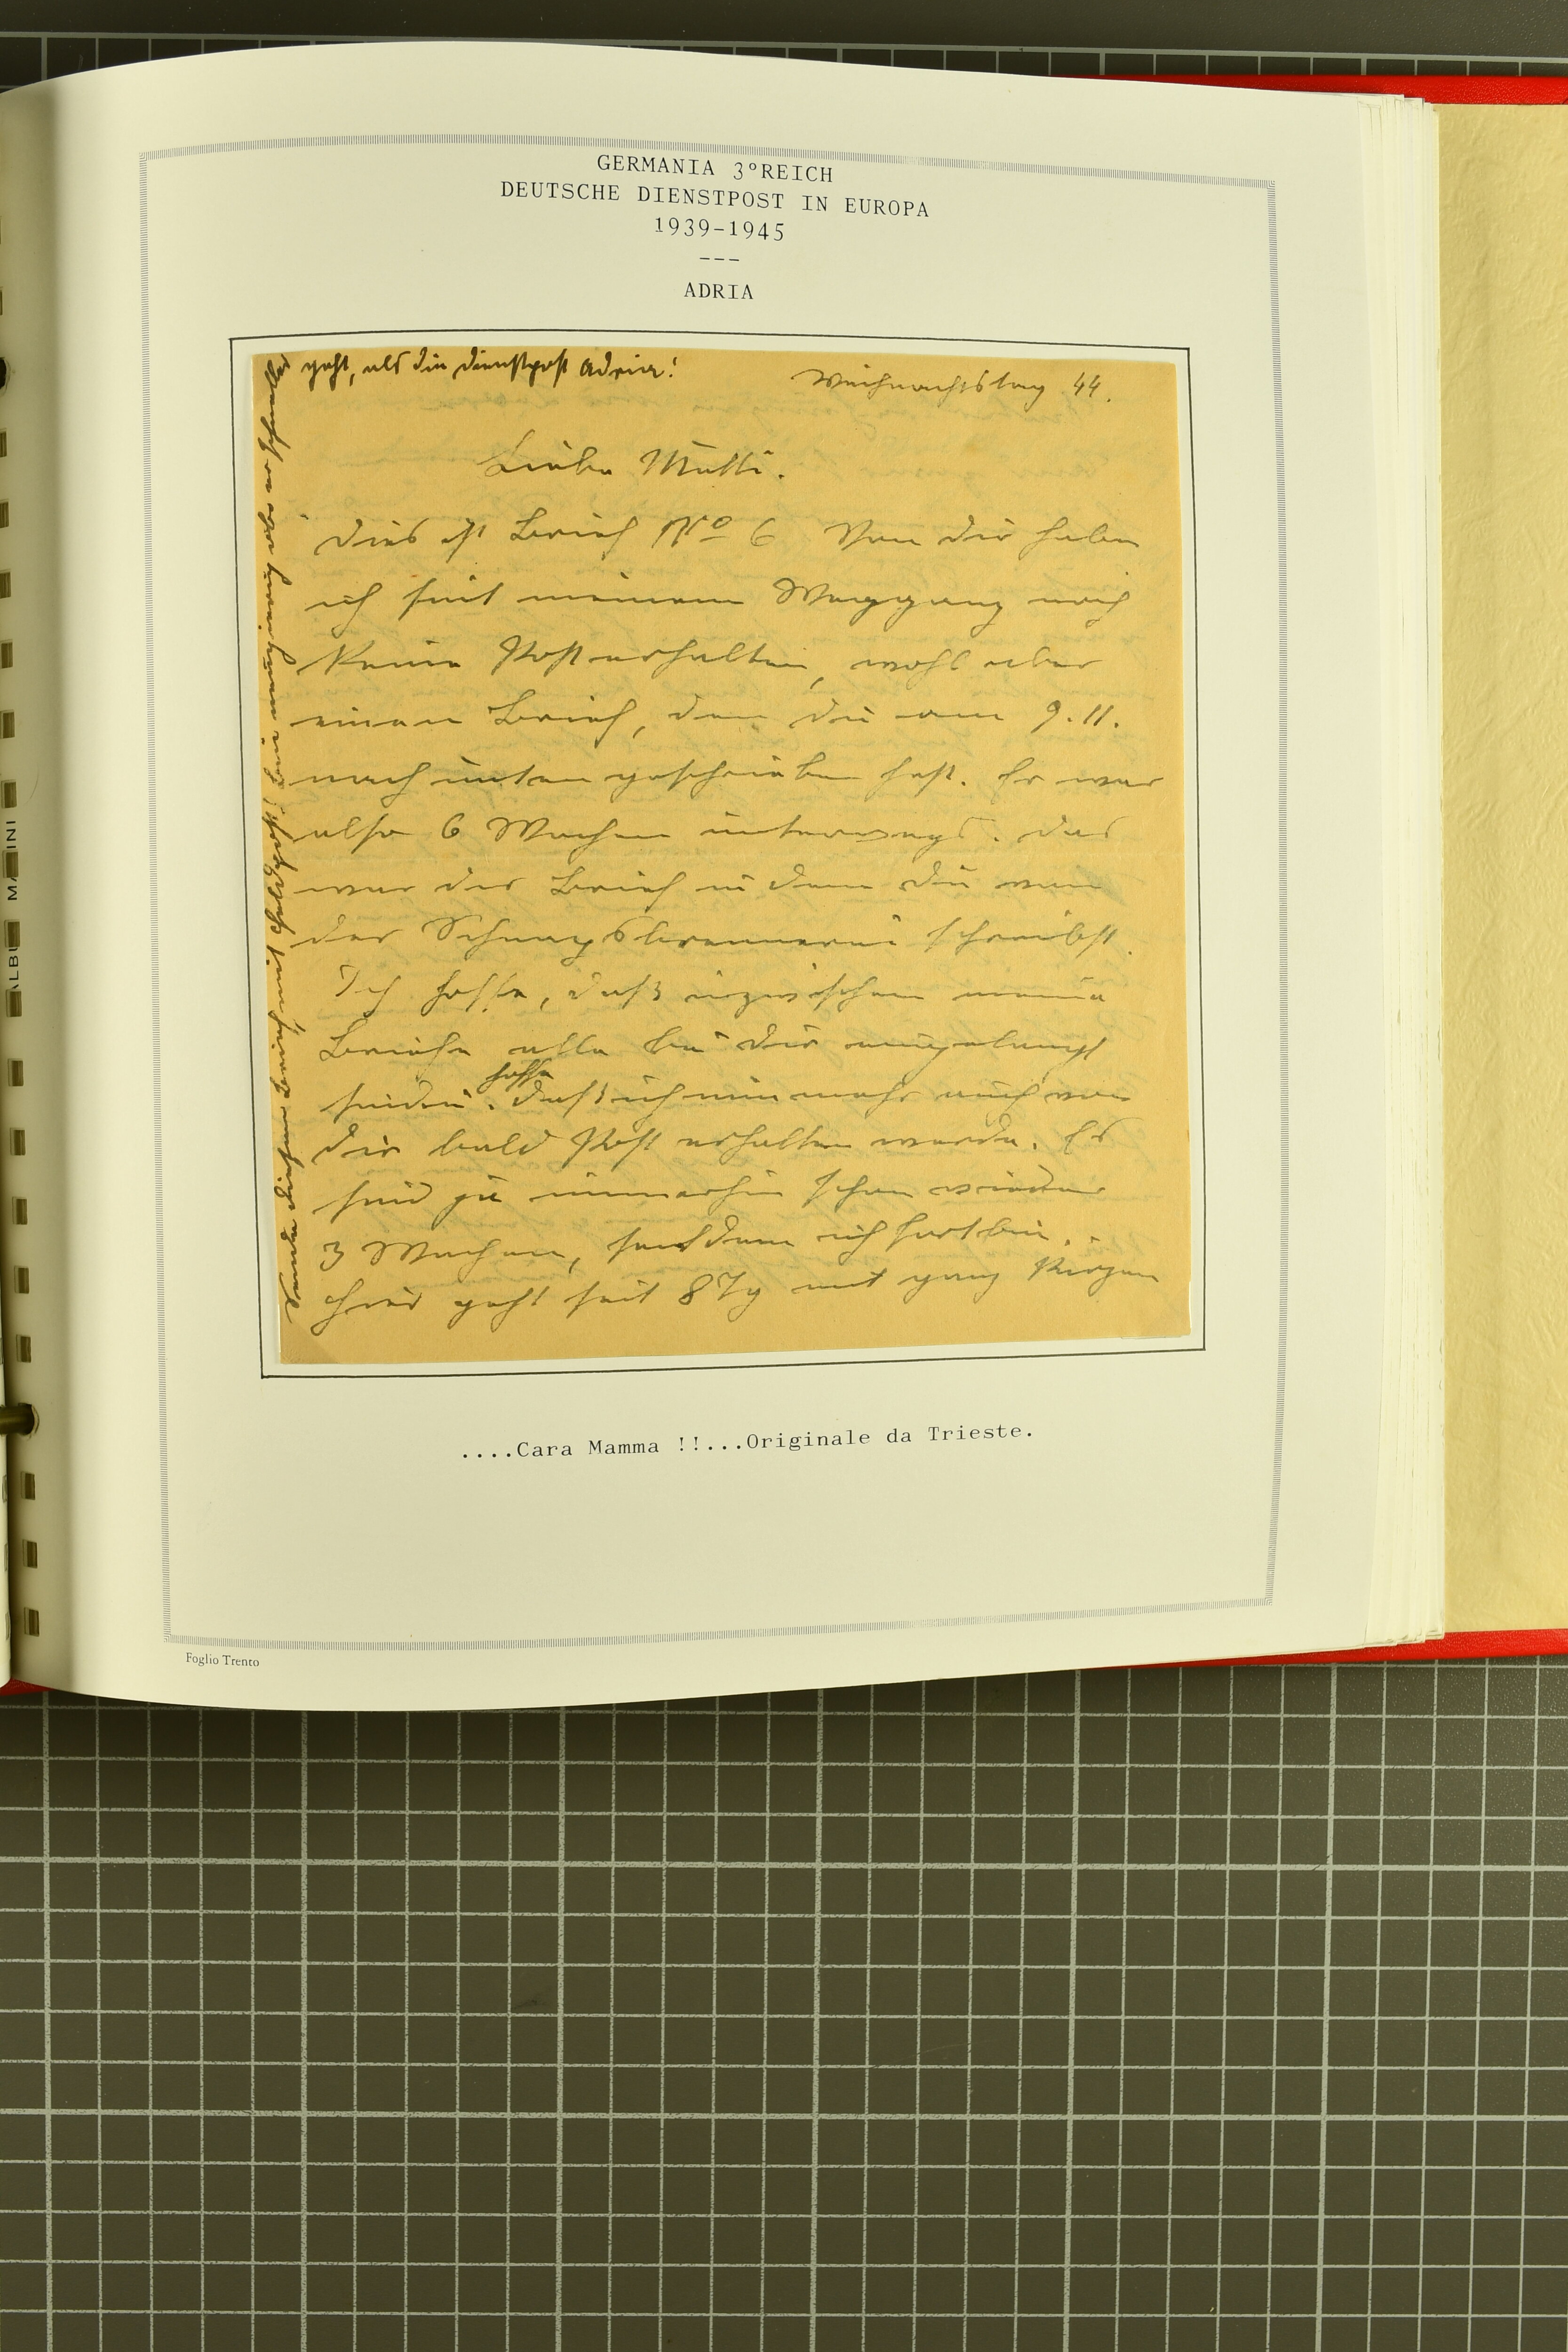 GERMANIA 3°REICH
DEUTSCHE DIENSTPOST IN EUROPA
1939-1945
---
ADRIA
geht, als die Dienstpost Adria!
Weihnachtstag 44.
Liebe Mutti.
Dies ist Brief No 6 Von Dir habe
ich seit meinem Weggang noch
keine Post erhalten, wohl aber
einen Brief, den Du am 9.11.
nach unten geschrieben hast. Er war
also 6 Wochen unterwegs. Das
war der Brief in dem Du von
der Schnapsbrennerei schreibst.
Ich hoffe, daß inzwischen meine
Briefe alle bei Dir angelangt
hoffe
daß ich nunmehr auch von
Dir bald Post erhalten werde. Es
sind ja immerhin schon wieder
3 Wochen, seitdem ich fort bin.
Hier geht seit 8 Tg mit ganz kurzen
....Cara Mamma !!...Originale da Trieste.
Foglio Trento